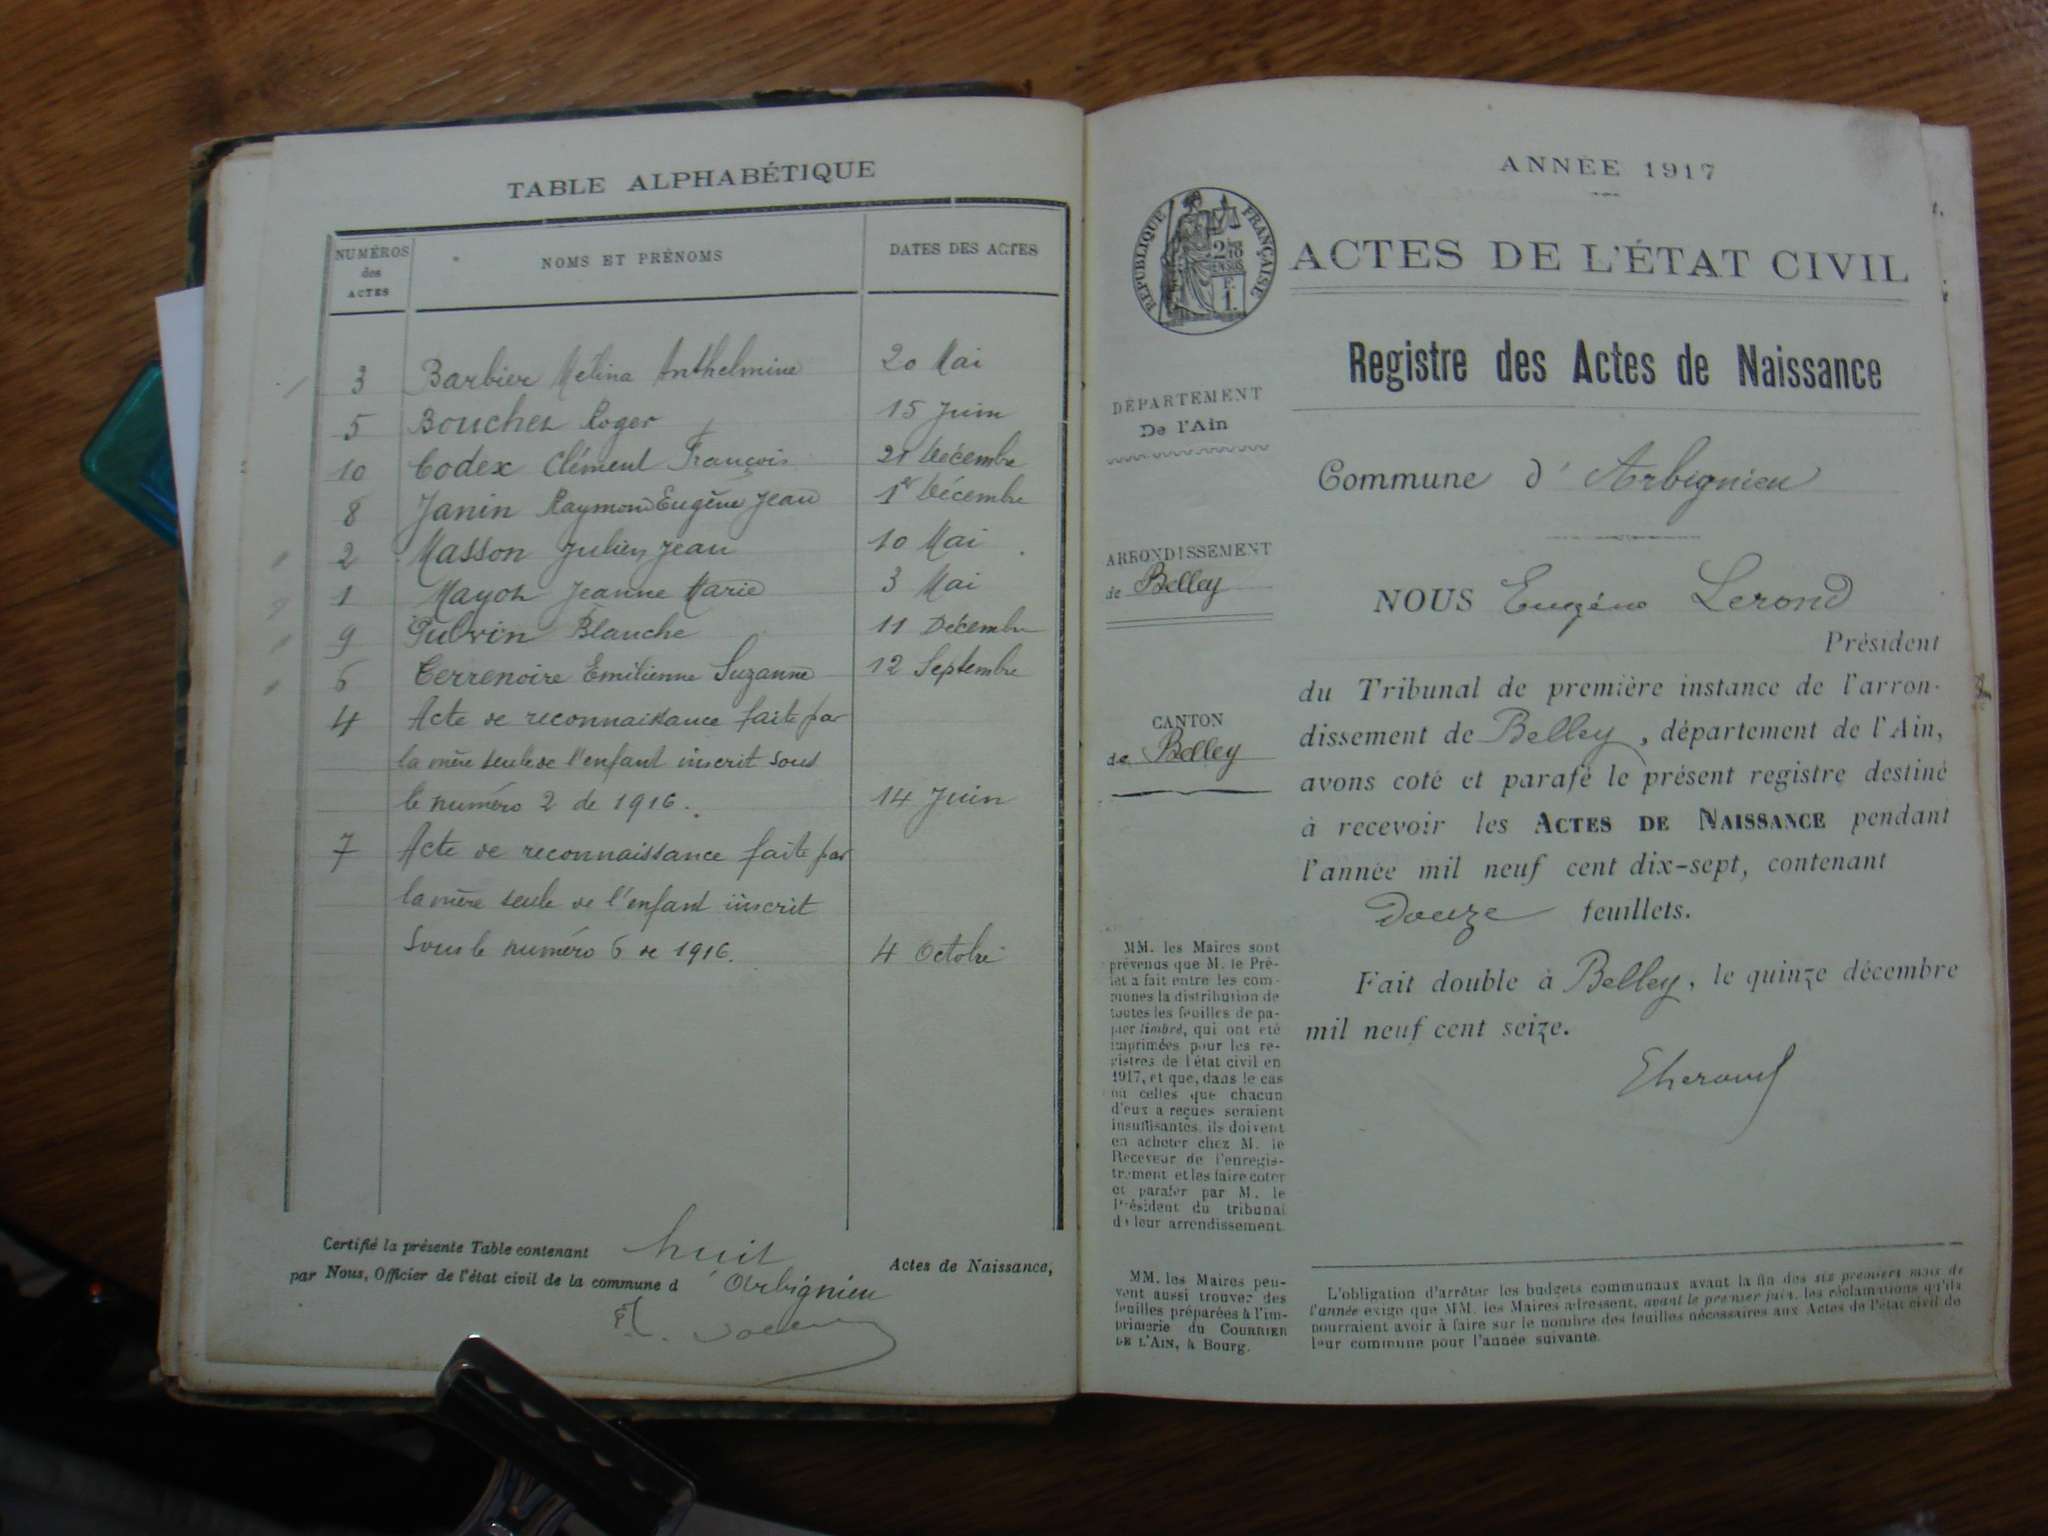 TABLE ALPHABÉTIQUE
NUMÉROS des ACTES
NOMS ET PRÉNOMS
DATES DES ACTES
3 Barbier Mélina Anthelmine 20 Mai
5 Bouchez Roger 15 Juin
10 Codex Clément François 21 Décembre
8 Janin Raymond Eugène Jean 1er Décembre
2 Masson Julien Jean 10 Mai
1 Mayoz Jeanne Marie 3 Mai
9 Pulvin Blanche 11 Décembre
6 Terrenoire Emilienne Suzanne 12 Septembre
4 Acte de reconnaissance faite par
la mère seule de l'enfant inscrit sous
le numéro 2 de 1916. 14 Juin
7 Acte de reconnaissance faite par
la mère seule de l'enfant inscrit
sous le numéro 6 de 1916. 4 Octobre
Certifié la présente Table contenant huit Actes de Naissance,
par Nous, Officier de l'état civil de la commune d'Arbignieu
ANNÉE 1917
RÉPUBLIQUE FRANÇAISE
ACTES DE L'ÉTAT CIVIL
Registre des Actes de Naissance
DÉPARTEMENT
De l'Ain
Commune d'Arbignieu
ARRONDISSEMENT
de Belley
NOUS Eugène Lerond
Président
du Tribunal de première instance de l'arron-
dissement de Belley, département de l'Ain,
avons coté et parafé le présent registre destiné
à recevoir les ACTES DE NAISSANCE pendant
l'année mil neuf cent dix-sept, contenant
Douze feuillets.
Fait double à Belley, le quinze décembre
mil neuf cent seize.
CANTON
de Belley
MM. les Maires sont
prévenus que M. le Pré-
fet a fait entre les com-
munes la distribution de
toutes les feuilles de pa-
pier timbré, qui ont été
imprimées pour les re-
gistres de l'état civil en
1917, et que, dans le cas
où celles que chacun
d'eux a reçues seraient
insuffisantes, ils doivent
en acheter chez M. le
Receveur de l'enregis-
trement et les faire coter
et parafer par M. le
Président du tribunal
de leur arrondissement.
MM. les Maires peu-
vent aussi trouver des
feuilles préparées à l'im-
primerie du COURRIER
DE L'AIN, à Bourg.
L'obligation d'arrêter les budgets communaux avant la fin des six premiers mois de
l'année exige que MM. les Maires adressent, avant le premier juin, les réclamations qu'ils
pourraient avoir à faire sur le nombre des feuilles nécessaires aux Actes de l'état civil de
leur commune pour l'année suivante.